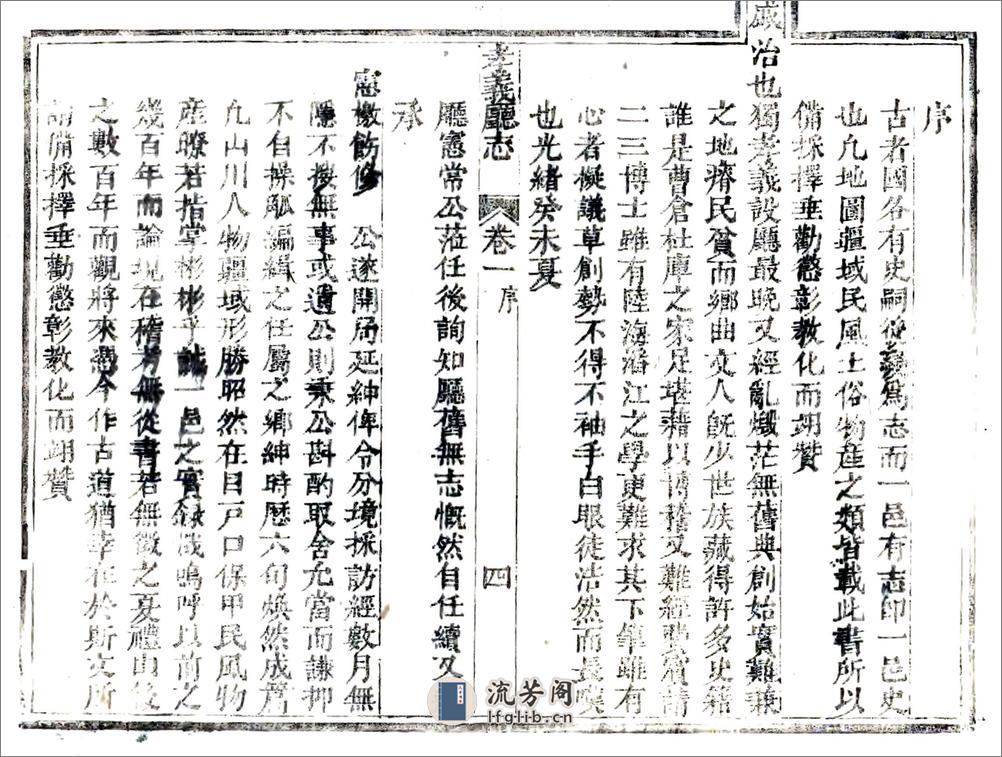 序
古者國各有史嗣後義爲志而一邑有志即一邑史
也凡地圖疆域民風土俗物產之類皆載此書所以
備採擇垂勸懲彰教化而翊贊
盛治也獨孝義設廳最晚又經亂燬茫無舊典創始實難兼
之地瘠民貧而鄉曲文人既少世族藏得許多史籍
誰是曹倉杜庫之家足堪藉以博稽又難經聘賓請
二三博士雖有陸海潘江之學更難求其下筆雖有
心者擬議草創勢不得不袖手白眼徒浩然而長嘆
也光緒癸未夏
孝義廳志 卷一 序 四
廳憲常公蒞任後詢知廳舊無志慨然自任續又
承
憲檄飭修 公遂開局延紳俾令分境採訪經數月無
隱不搜無事或遺公則秉公斟酌取舍允當而謙抑
不自操觚編緝之任屬之鄉紳時歷六旬煥然成篇
凡山川人物疆域形勝昭然在目戶口保甲民風物
產瞭若指掌彬彬乎誠一邑之實錄哉嗚呼以前之
幾百年而論現在稽考無從書若無徵之夏禮由後
之數百年而觀將來憑今作古道猶幸在於斯文所
謂備採擇垂勸懲彰教化而翊贊
流芳阁
lfglib.cn